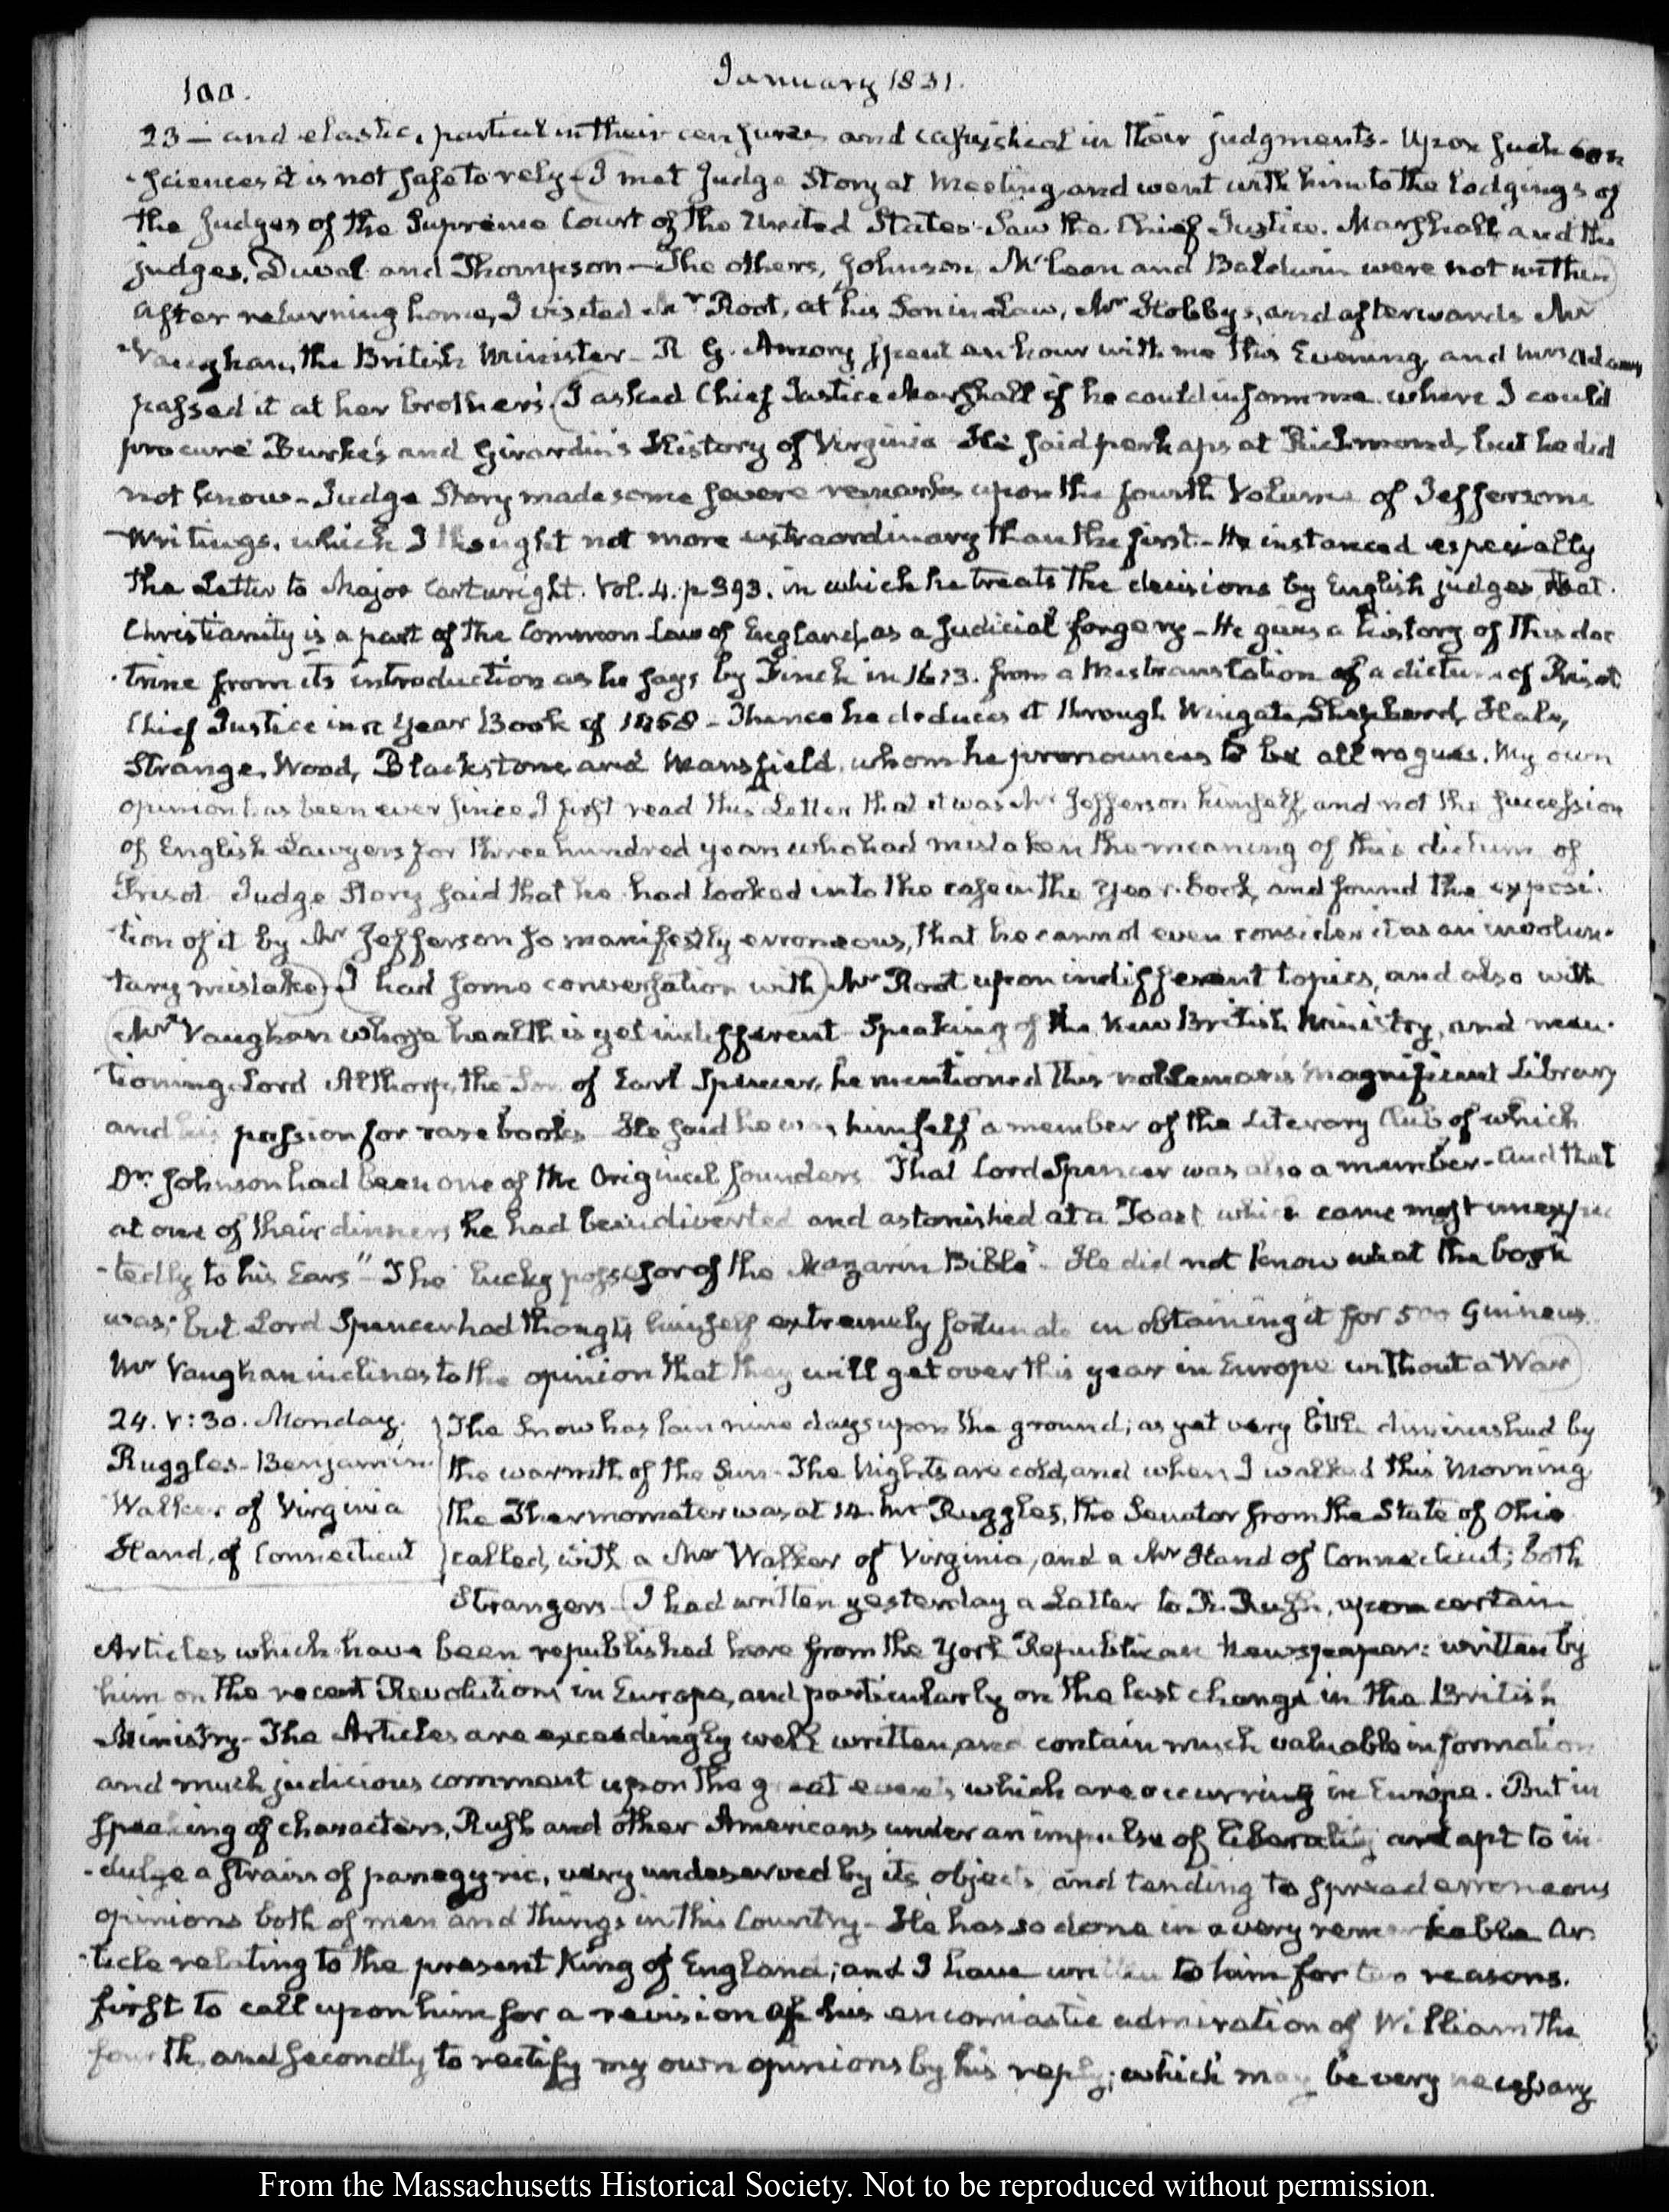 100.
January 1831.
23 — and elastic, partial in their censures and in their judgments. Upon such con
-sciences it is not safe to rely — I met Judge Story at Meeting, and went with him to the lodgings of
the Judges of the Supreme Court of the United States. Saw the Chief Justice. Marshall and the
judges, Duval and Thompson — The others, Johnson, McLean and Baldwin were not within
After returning home, I visited Mr Root, at his Son in Law, Mr Hobby's, and afterwards Mr
Vaughan, the British Minister — R G. Amory spent an hour with me this Evening, and Mrs Adams
passed it at her brother's. I asked Chief Justice Marshall if he could inform me where I could
procure Burke's and Girardin's History of Virginia — He said perhaps at Richmond, but he did
not know — Judge Story made some severe remarks upon the fourth Volume of Jeffersons
Writings, which I thought not more extraordinary than the first. — He instanced especially
the Letter to Major Cartwright. Vol. 4. p 393. in which he treats the decisions by English judges, that
Christianity is a part of the Common Law of England, as a Judicial forgery — He gives a history of this doc
-trine from its introduction as he says by Finch in 1613. from a mistranslation of a dictum of Prisot
Chief Justice in a Year Book of 1458 — Thence he deduces it through Wingate, Sheppard, Hale,
Strange, Wood, Blackstone and Mansfield, whom he pronounces to be all rogues. My own
opinion has been ever since I first read this Letter that it was Mr Jefferson himself, and not the succession
of English Lawyers for three hundred years who had mistaken the meaning of this dictum of
Prisot — Judge Story said that he had looked into the case in the Year-book, and found the exposi-
-tion of it by Mr Jefferson so manifestly erroneous, that he cannot even consider it as an involun-
tary mistake) I had some conversation with Mr Root upon indifferent topics, and also with
Mr Vaughan whose health is yet indifferent — Speaking of the New British Ministry, and men-
tioning Lord Althorp, the Son of Earl Spencer, he mentioned this nobleman's magnificent Library
and his passion for rare books — He said he was himself a member of the Literary Club of which
Dr. Johnson had been one of the Original founders. That Lord Spencer was also a member — and that
at one of their dinners he had been diverted and astonished at a Toast which came most unexpec
-tedly to his Ears "The lucky possessor of the Mazarin Bible". He did not know what the book
was; but Lord Spencer had thought himself extremely fortunate in obtaining it for 500 Guineas.
Mr Vaughan inclines to the opinion that they will get over this year in Europe without a War
24. V:30. Monday.
Ruggles — Benjamin
Walker of Virginia
Hand, of Connecticut
The Snow has lain nine days upon the ground; as yet very little diminished by
the warmth of the Sun — The Nights are cold, and when I walked this Morning
the Thermometer was at 14. Mr Ruggles, the Senator from the State of Ohio
called, with a Mr Walker of Virginia, and a Mr Hand of Connecticut; both
Strangers — I had written yesterday a Letter to R. Rush, upon certain
Articles which have been republished here from the York Republican Newspaper: written by
him on the recent Revolutions in Europe, and particularly on the last change in the British
Ministry — The Articles are exceedingly well written, and contain much valuable information
and much judicious comment upon the great events which are occurring in Europe. But in
speaking of characters, Rush and other Americans under an impulse of liberality are apt to in-
-dulge a strain of panegyric, very undeserved by its objects, and tending to spread erroneous
opinions both of men and things in this Country — He has so done in a very remarkable Ar
-ticle relating to the present King of England; and I have written to him for two reasons.
first to call upon him for a revision of his encomiastic admiration of William the
fourth, and secondly to rectify my own opinions by his reply; which may be very necessary
From the Massachusetts Historical Society. Not to be reproduced without permission.